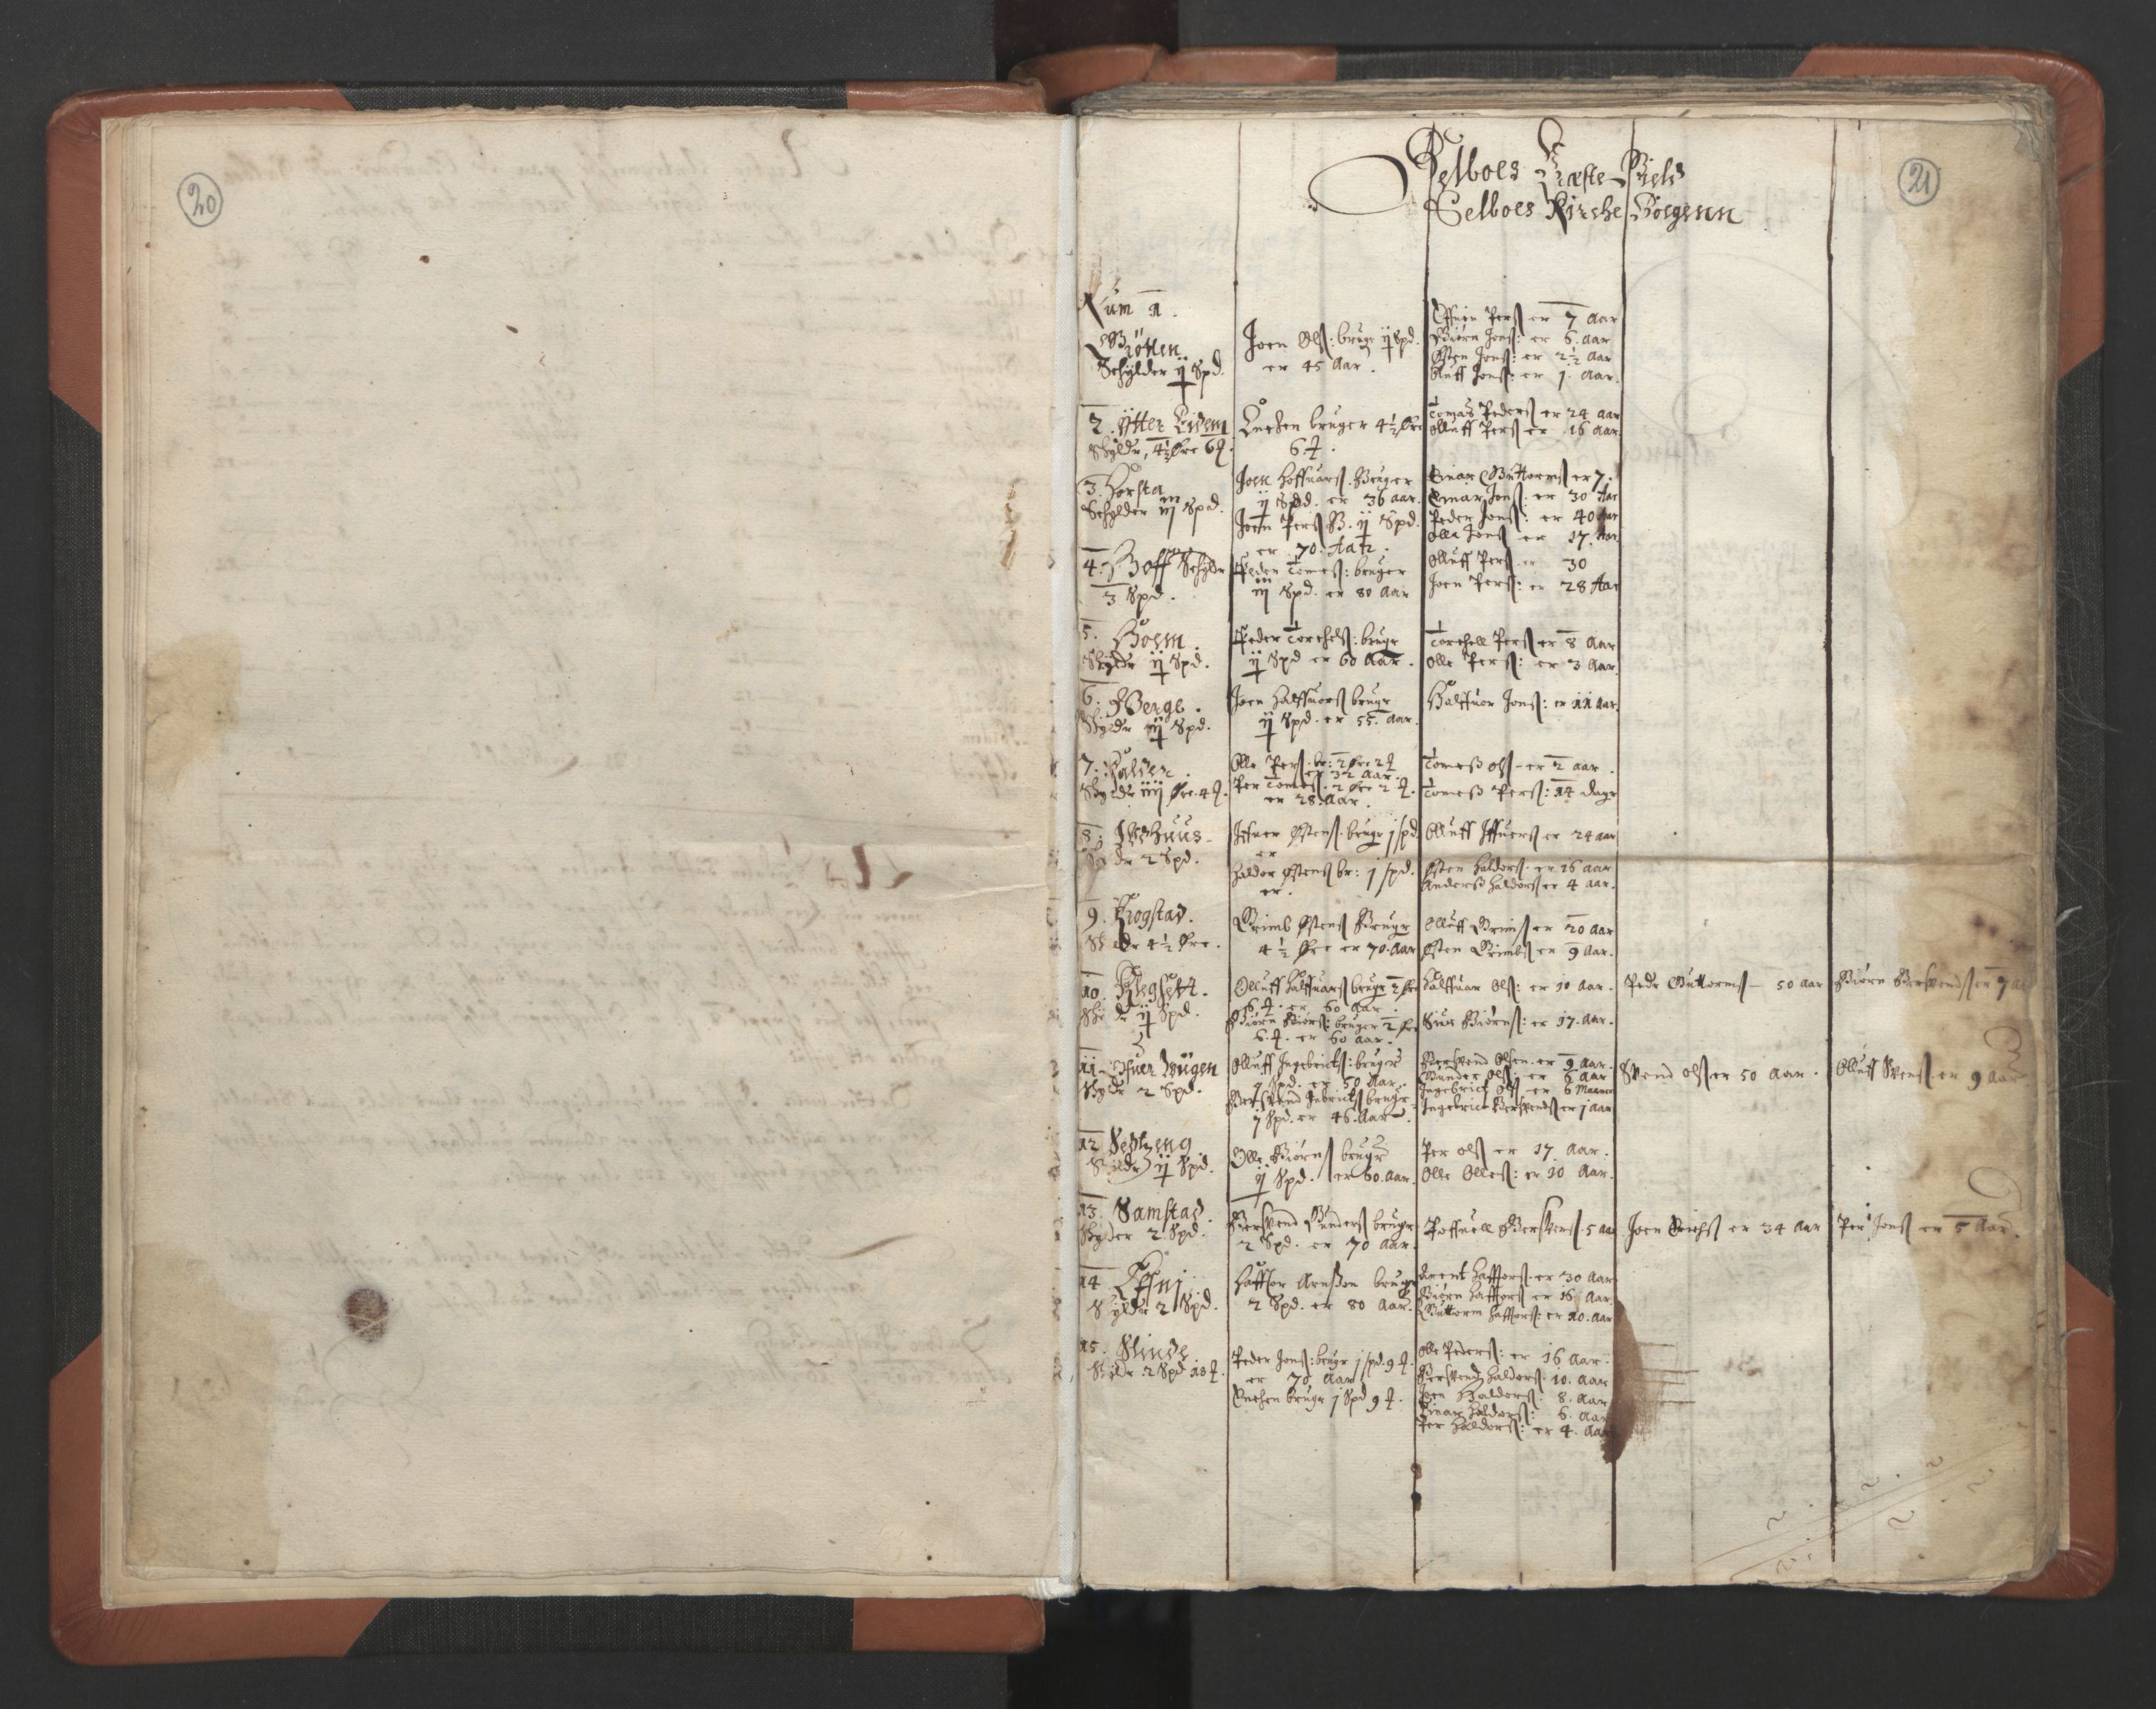 20
21
Selboes Præste Gield
Selboes Kirche Soegenn
Num 1.
Schylder ij Spd.
Joen Olß: brugr ij Spd.
er 45 Aar.
Perß er 7 Aar
Biørn Jonß: er 6. Aar
Østen Jonß: er 2½ Aar
Oluff Jonß: er 1. Aar.
2. Ytter Eidem
Skyldr, 4½ Øre 6
Enchen bruger 4½ Øre
6
Tomas Pederß er 24 aar
Olluff Perß er 16 aar.
3. Horsta
Schylder iij Spd.
Joen Hoffuarß. Bruger
ij Spd. er 36 aar.
Joen Perß B. ij Spd.
er 70. Aar.
Einar Guttormß er 7.
Einar Jonß. er 30 Aar
Peder Jonß: er 40 Aar
Olle Jonß er 17. Aar.
4. Hoff Schyldr
3 Spd.
Peder Tomeß: bruger
iij Spd. er 80 Aar
Olluff Perß er 30
Joen Perß: er 28 Aar
5. Boem.
Skyldr ij Spd.
Peder Torchelß: brugr
ij Spd er 60 Aar.
Torchell Perß er 8 Aar
Olle Perß: er 3 Aar.
6. Berge.
Skyldr ij Spd.
Joen Halffuorß brugr
ij Spd. er 55. Aar.
Halffuor Jonß: er 11 Aar.
7.
Skyldr iiij Øre. 4
Olle Perß. br: 2 Øre 2
er 32 Aar.
Per Tomeß. 2 Øre 2
er 28 Aar.
Tomeß Olß er 2 aar.
Tomeß Perß: 14 dage
8.
2 Spd.
Iffuer Østenß. brugr j spd.
er
Haldor Østenß br: j spd.
er.
Olluff Iffuerß er 24 aar
Østen Haldorß. er 16 aar
Anderß Haldorß er 4 aar.
9. Rogstad.
4½ Øre.
Grimb Østenß Brugr
4½ Øre er 70. Aar
Olluff Grimß er 20 Aar
Østen Grimbß er 9 Aar.
10.
ij Spd.
Olluff Halffuarß brugr 2 Øre
6. er 60 Aar.
Biørn Biørß: bruger 2 Øre
6. er 60 aar.
Halffuar Olß: er 10 Aar.
Siur Biørnß: er 17. Aar.
Pedr Guttormß 50 Aar
Biørn Berßuendß er 7 Aar
11. Ofuer Bügen
Skyldr 2 Spd.
Olluff Ingebrictß: brugr
j Spd. er 50 Aar.
Berßuend Inbrictß brugr.
j Spd. er 46. Aar.
Berßuend Olsen er 9 Aar.
Gunder Olß: er 6 Aar
Ingebrict Olß er 6 Maaner
Ingebrict Berßuendß er j aar
Suend Olß er 50 Aar.
Olluff Suenß. er 9 Aar
12
Skyldr ij Spd.
Olle Biørnß brugr
ij Spd. er 60. Aar.
Per Olß er 17. Aar.
Olle Olleß: er 10 Aar.
13. Samstad.
Skylder 2. Spd.
Berßuend Gunderß brugr
2 Spd. er 70 Aar.
Poffuell Berßuenß. 5 aar
Joen Erichß er 34 Aar
Per Jonß er 5 Aar.
14
Skyldr 2 Spd.
Haffor Arnßøn brugr
2 Spd. er 80 Aar.
Arent Hafforß: er 30 Aar
Biørn Hafforß er 16 Aar.
Guttorm Hafforß: er 10. Aar
15. Slinde
Skyldr 2 Spd 18
Peder Jonß: brugr j spd. 9
er 70 Aar
Enchen brugr j Spd 9
Olle Pederß: er 16 Aar.
Berßuend Haldorß. 10. aar
Joen Haldorß: 8. Aar
Einar Haldorß: 6. Aar
Per Haldorß: er 4. Aar